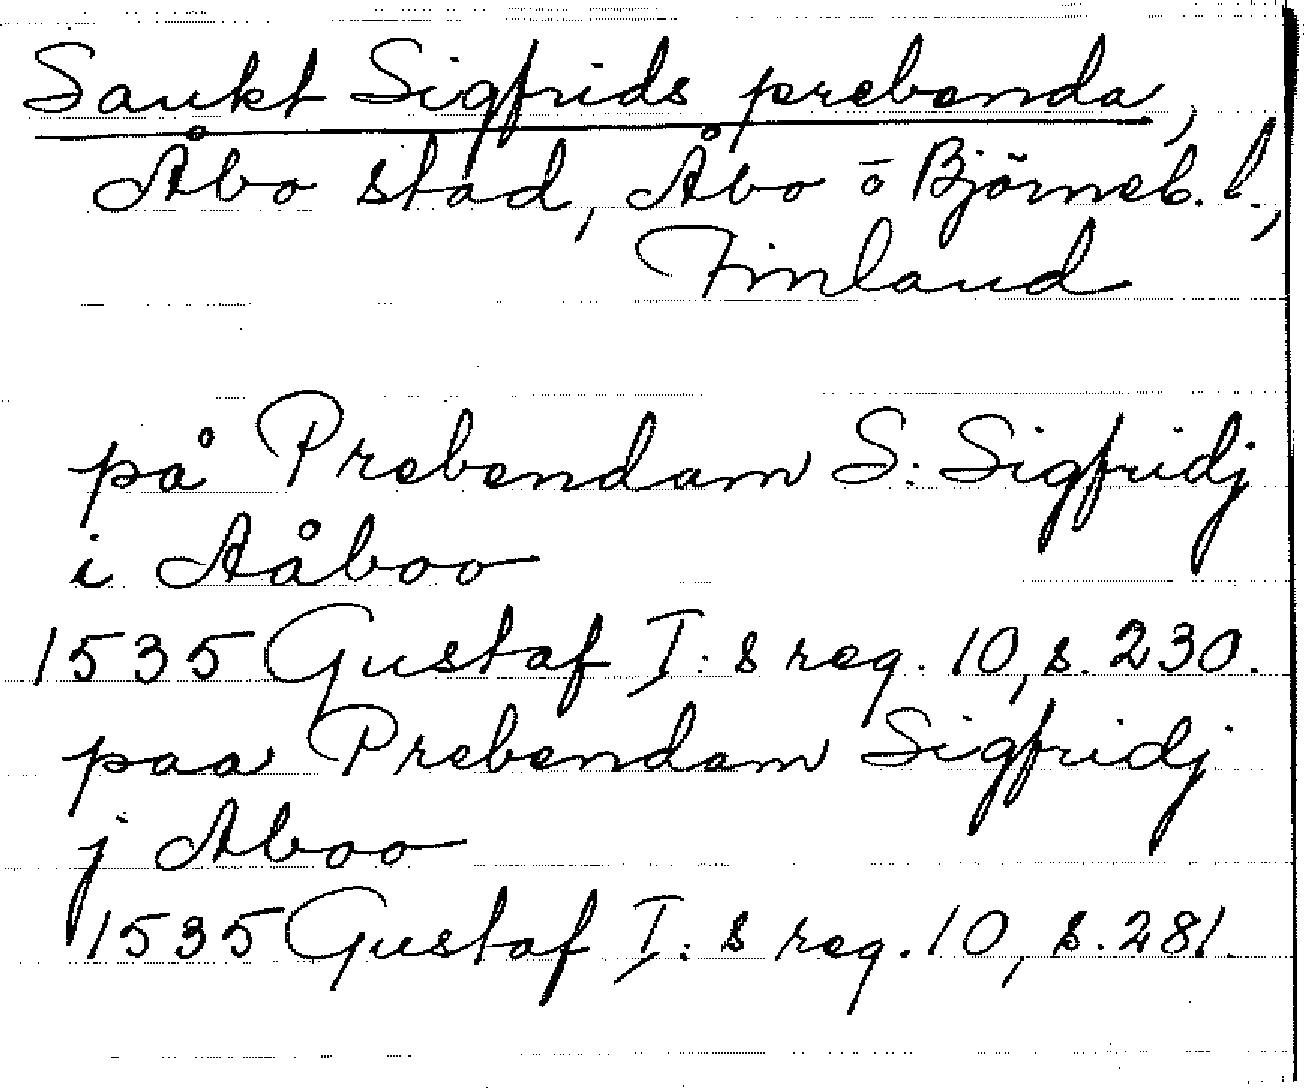 Sankt Sigfrids prebenda,
Åbo stad, Åbo o Björneb. l.,
Finland
på Prebendam S: Sigfridj
i Aåboo
1535 Gustaf I:s reg. 10, s. 230.
paa Prebendam Sigfridj
j Aboo
1535 Gustaf I:s reg. 10, s. 281.